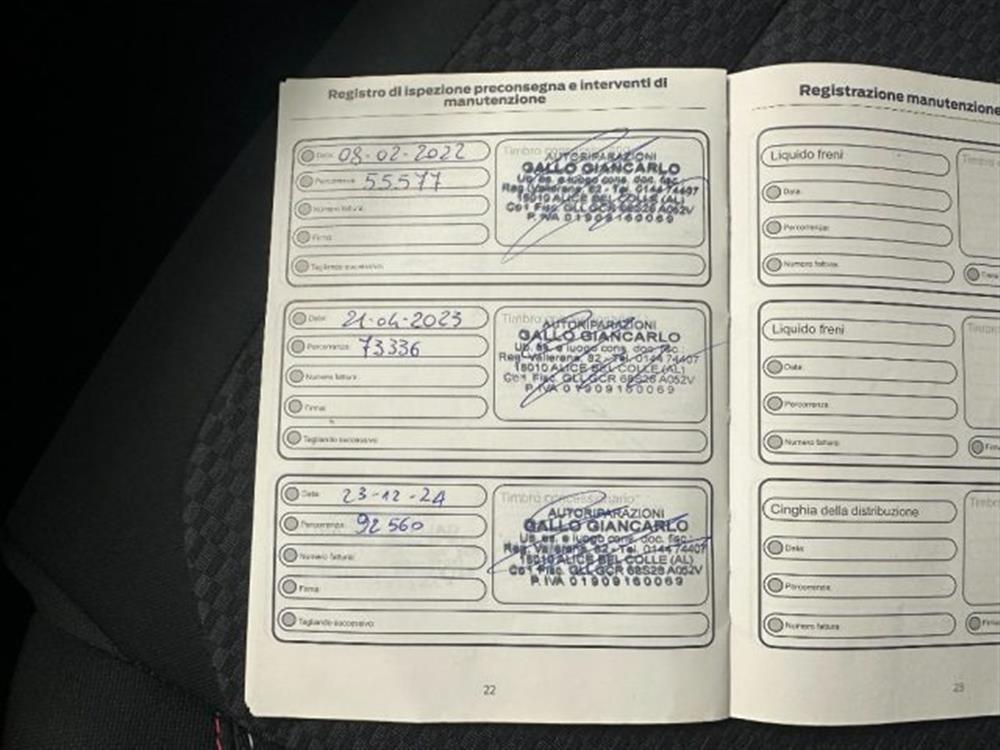 Registro di ispezione preconsegna e interventi di
manutenzione
Data: 08-02-2022
Percorrenza: 55577
Numero fattura:
Firma:
Tagliando successivo:
Timbro
AUTORIPARAZIONI
GALLO GIANCARLO
Ub. es. e luogo cons. doc. fisc.:
Reg. Vallerana, 82 - Tel. 0144 74407
15010 ALICE BEL COLLE (AL)
Cod. Fisc. GLL GCR 68S28 A052V
P. IVA 01909160069
Data: 21-04-2023
Percorrenza: 73336
Numero fattura:
Firma:
Tagliando successivo:
Timbro
AUTORIPARAZIONI
GALLO GIANCARLO
Ub. es. e luogo cons. doc. fisc.:
Reg. Vallerana, 82 - Tel. 0144 74407
15010 ALICE BEL COLLE (AL)
Cod. Fisc. GLL GCR 68S28 A052V
P. IVA 01909160069
Data: 23-12-24
Percorrenza: 92560
Numero fattura:
Firma:
Tagliando successivo:
Timbro concessionario:
AUTORIPARAZIONI
GALLO GIANCARLO
Ub. es. e luogo cons. doc. fisc.:
Reg. Vallerana, 82 - Tel. 0144 74407
15010 ALICE BEL COLLE (AL)
Cod. Fisc. GLL GCR 68S28 A052V
P. IVA 01909160069
22
Registrazione manutenzione
Liquido freni
Data:
Percorrenza:
Numero fattura:
Liquido freni
Data:
Percorrenza:
Numero fattura:
Cinghia della distribuzione
Data:
Percorrenza:
Numero fattura:
23